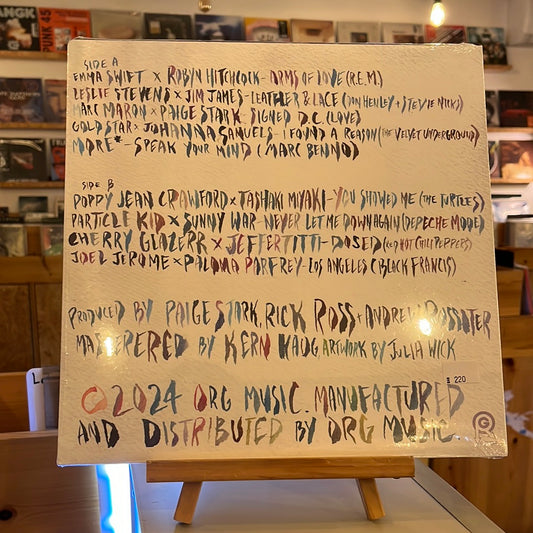 SIDE A
EMMA SWIFT x ROBYN HITCHCOCK - ARMS OF LOVE (R.E.M.)
LESLIE STEVENS x JIM JAMES - LEATHER & LACE (DON HENLEY + STEVIE NICKS)
MARC MARON x PAIGE STARK - SIGNED D.C. (LOVE)
GOLD STAR x JOHANNA SAMUELS - I FOUND A REASON (THE VELVET UNDERGROUND)
MORE* - SPEAK YOUR MIND (MARC BENNO)
SIDE B
POPPY JEAN CRAWFORD x TASHAKI MIYAKI - YOU SHOWED ME (THE TURTLES)
PARTICLE KID x SUNNY WAR - NEVER LET ME DOWN AGAIN (DEPECHE MODE)
CHERRY GLAZERR x JEFFERTITTI - DOSED (RED HOT CHILI PEPPERS)
JOEL JEROME x PALOMA PARFREY - LOS ANGELES (BLACK FRANCIS)
PRODUCED BY PAIGE STARK, RICK ROSS + ANDREW ROSSITER
MASTERERED BY KERN HAUG ARTWORK BY JULIA WICK
© 2024 ORG MUSIC. MANUFACTURED
AND DISTRIBUTED BY ORG MUSIC.
220
PUNK 45